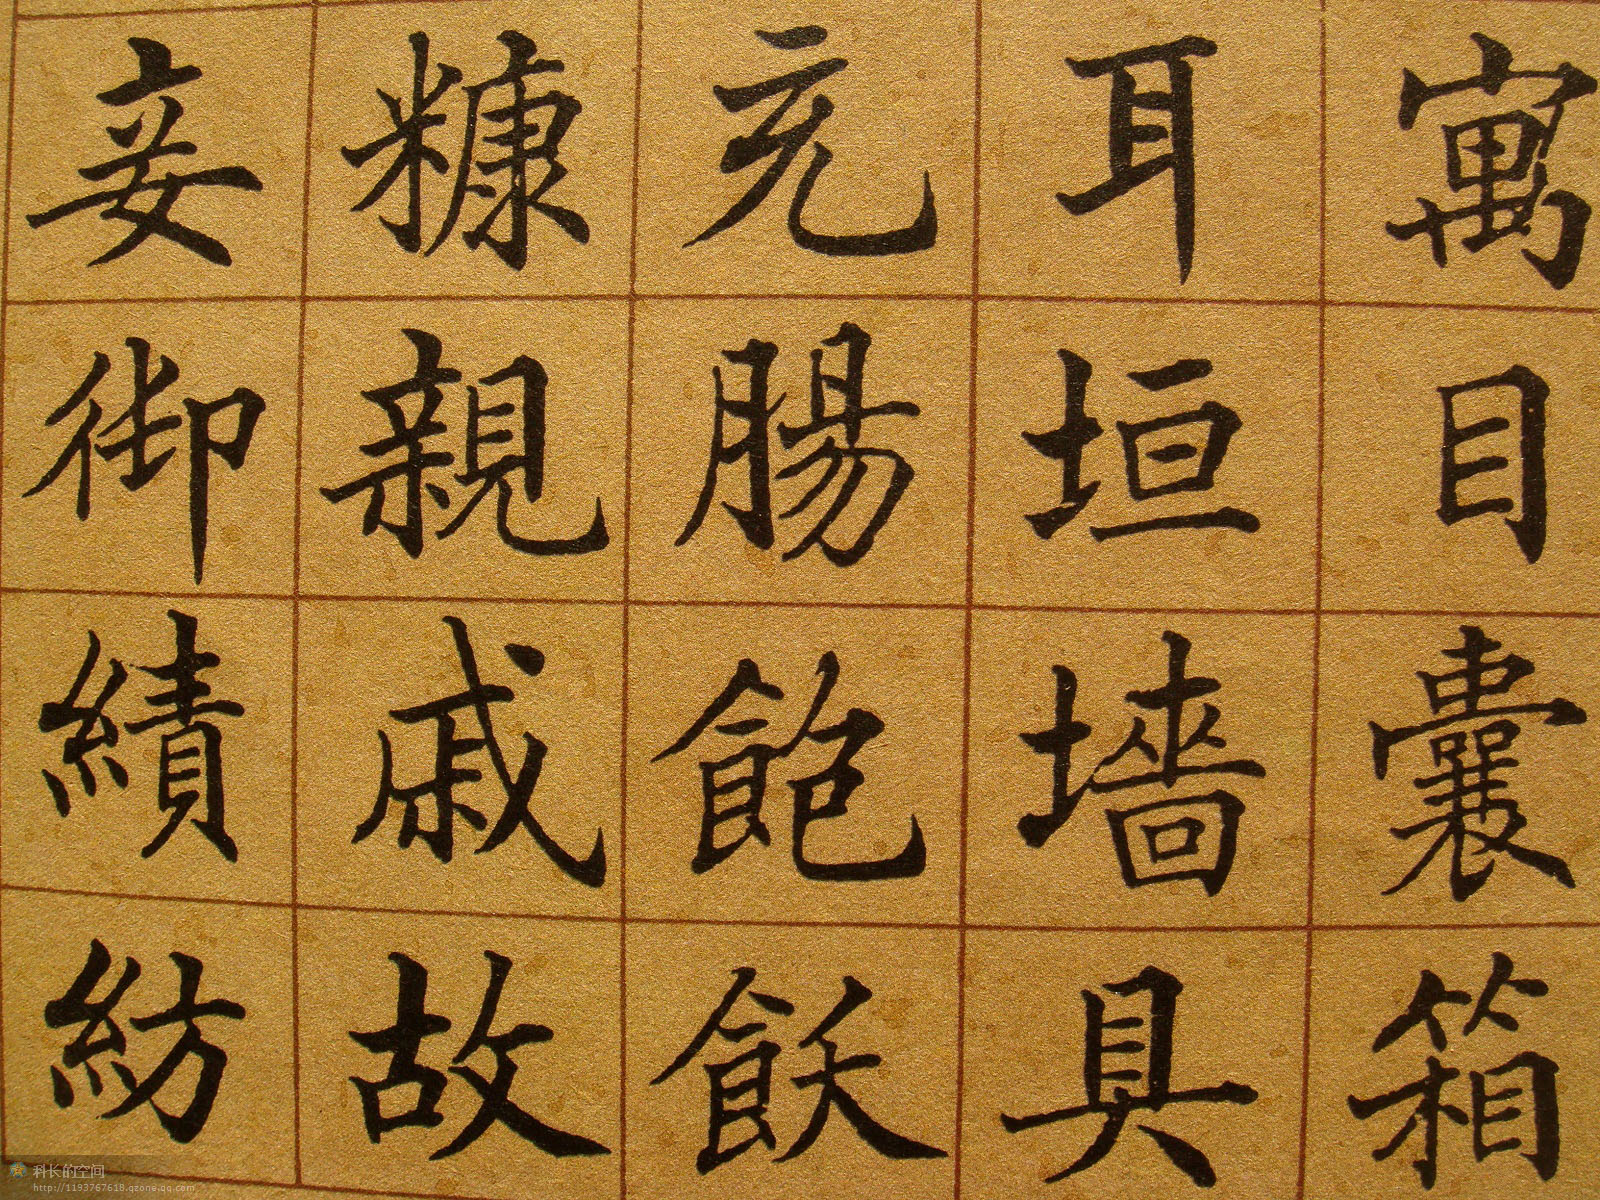 寓目囊箱
耳垣墻具
充腸飽飫
糠親戚故
妾御績紡
科长的空间
http://1193767618.qzone.qq.com